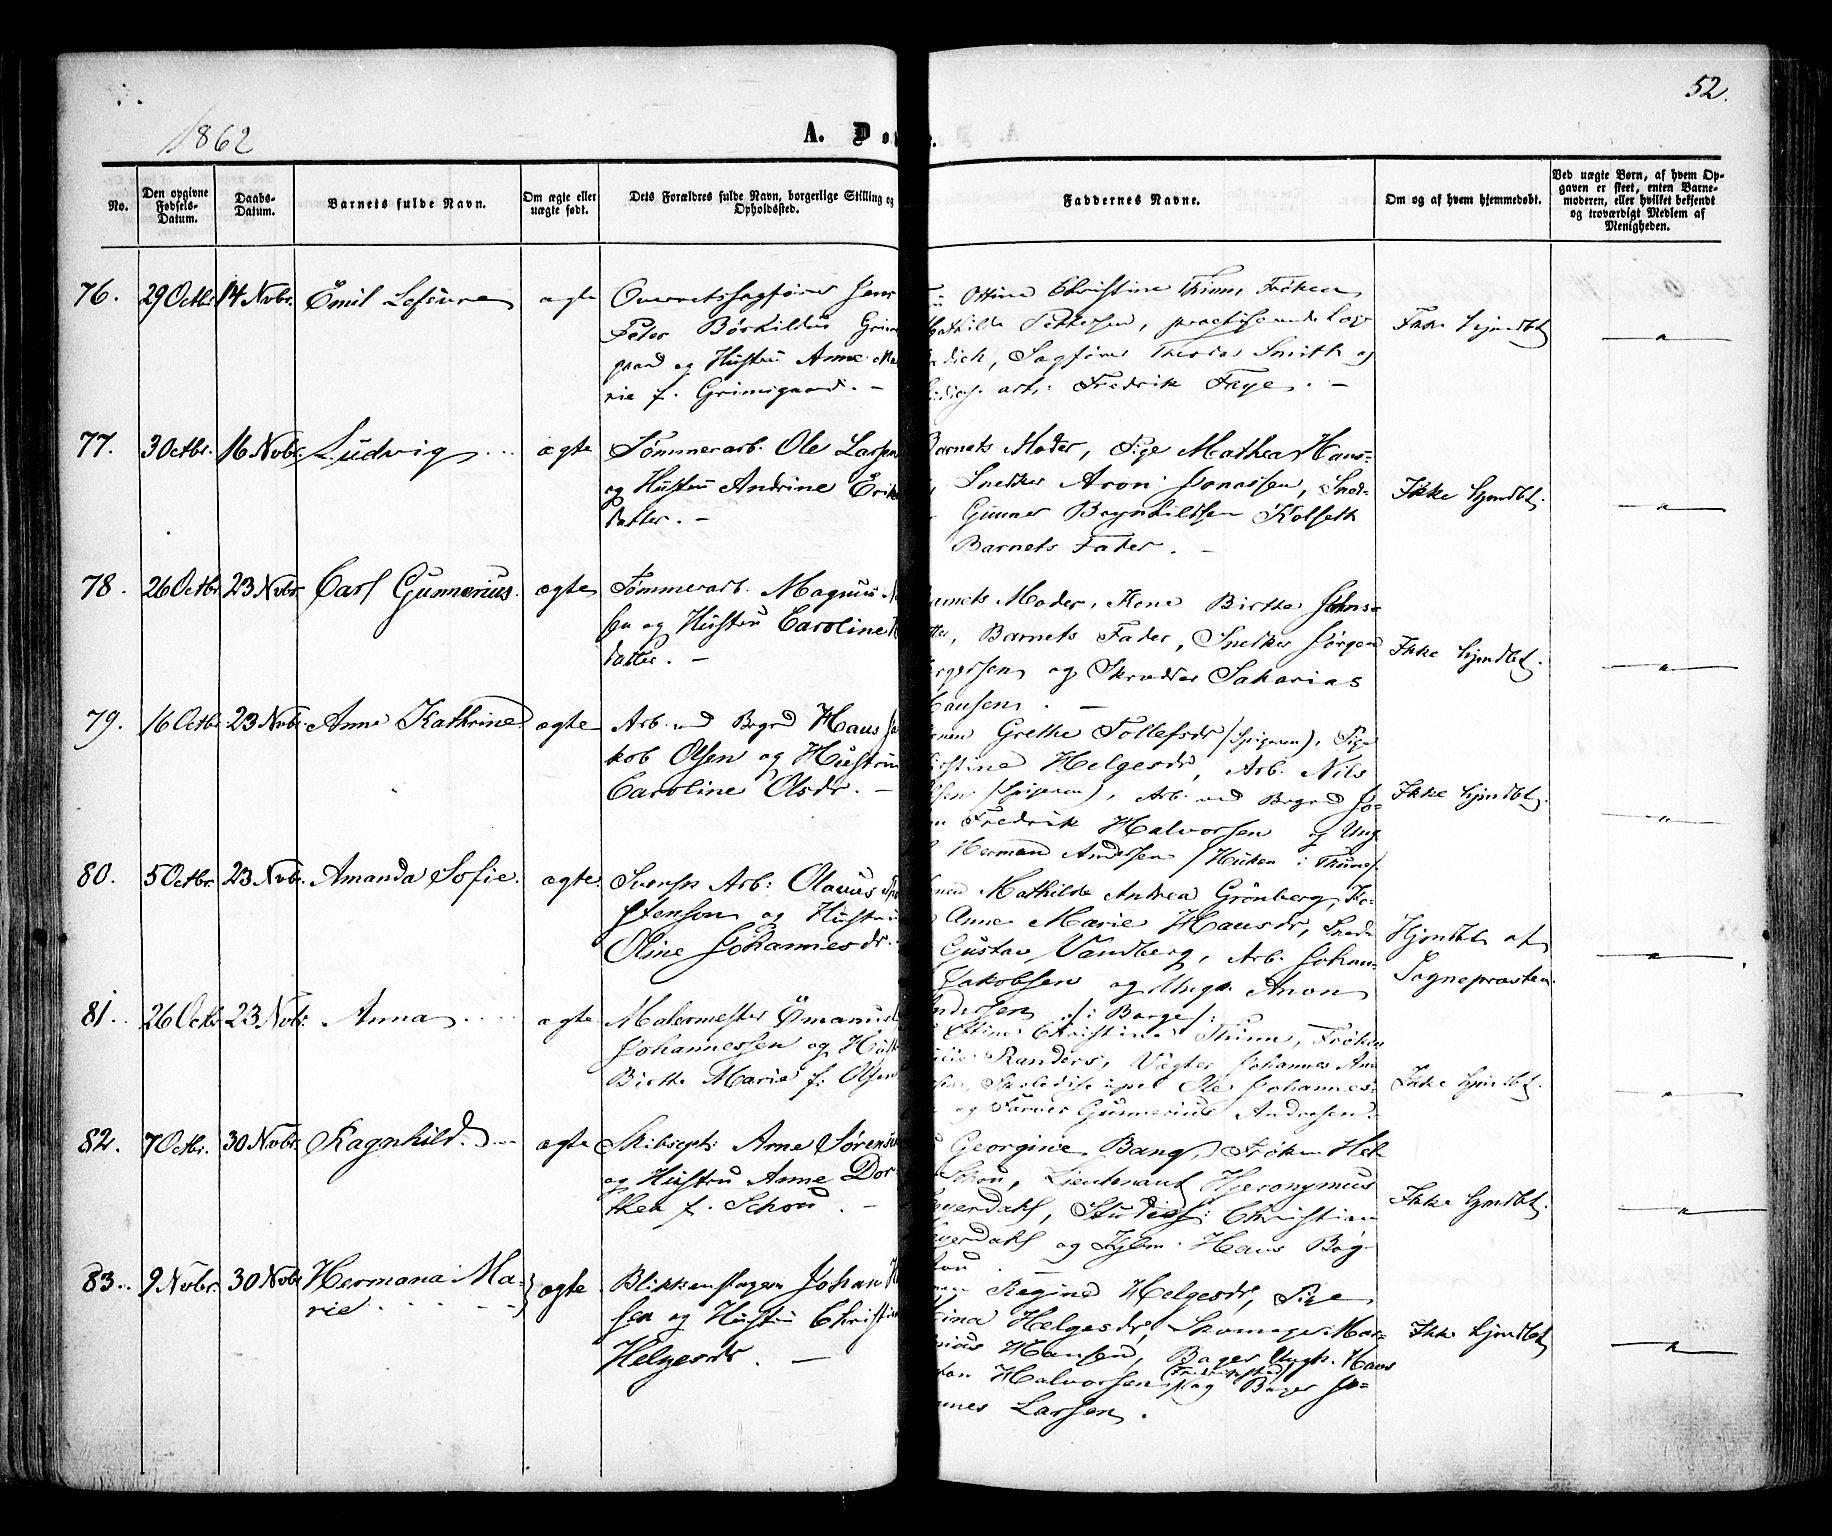 52.
1862
A. Dø
No.
Den opgivne Fødsels-Datum.
Daabs-Datum.
Barnets fulde Navn.
Om ægte eller uægte født.
Dets Forældres fulde Navn, borgerlige Stilling og Opholdssted.
Faddernes Navne.
Om og af hvem hjemmedøbt.
Ved uægte Børn, af hvem Opgaven er skeet, enten Barnemoderen, eller hvilket bekjendt og troværdigt Medlem af Menigheden.
76. 29 Octbr. 14 Novbr. Emil Lefèvre ægte
Overretssagfører Jens
Peter Børhildus Grims
gaard og Hustru Anne Ma
rie f. Grimsgaard. –
Ottine Christine Thinn, Frøken
Mathilde Pettersen, practiserende Læge
Sagfører Thomas Smith og
art: Fredrik Faye. –
Ikke hjmdbt. "
77. 3 Octbr. 16 Novbr. Ludvig ægte
Tømmerarb. Ole Larsen
og Hustru Andrine Erik
datter. –
Barnets Moder, Pige Mathea Hans=
Snedker Aron Jonassen, Sned=
Gunner Bøynhildsen Kolseth
Barnets Fader. –
Ikke hjmdbt. "
78. 26 Octbr. 23 Novbr. Carl Gunnerius. ægte
Tømmerarb. Magnus
sen og Hustru Caroline
datter. –
Barnets Moder, Kone Birthe Johns=
tter, Barnets Fader, Snedker Jørgen
ørgersen og Skrædder Sakarias
Hansen. –
Ikke hjmdbt. "
79. 16 Octbr. 23 Novbr. Anne Kathrine ægte
Arb. ved Bogrd Hans Ja
kob Olsen og Hustru
Caroline Olsdr. –
Grethe Tollefsdr (Spigeren), Pige
istine Helgesdr, Arb. Nils
lsen (Spigeren), Arb. ved Bogrd Jo=
Fredrik Halvorsen og Ung
Herman Andersen
Ikke hjmdbt. "
80. 5 Octbr. 23 Novbr. Amanda Sofie. ægte
Svensk Arb: Olaus
Stenson og Hustru
Oline Johannesdr.
Mathilde Andrea Grönberg, Ko=
Anne Marie Hansdr, Sned
Gustav Vandberg, Arb. Johan=
Jakobsen og Ungk. Anon
Andersen /: Borge :/
Hjmdbt af
Sognepræsten. "
81. 26 Octbr 23 Novbr. Anna ægte
Malermester Emanuel
Johannessen og Hust
Birthe Marie f. Olsen
Ottine Christine Thinn, Frøken
lie Randers, Vægter Johannes An
Ole Johannes
og Farver Gunnerius Andresen.
Ikke hjmdbt. "
82. 7 Octbr. 30 Novbr. Ragnhild ægte
Skibscpt: Arne Sørensen
og Hustru Anne Dor=
thea f. Schou. –
Georgine Bang, Frøken Hel
Schou, Lieutenant Hieronymus
eyerdahl, Studios: Christian
eyerdahl og Hans Bøg=
tou. –
Ikke hjmdbt. "
83. 9 Novbr. 30 Novbr Hermana Ma=
rie ægte
Blikkenslager Johan
sen og Hustru Christi
Helgesdr. –
Regine Helgesdr, Pige
tina Helgesdr, Skomager Mar=
nius Hansen, Bager Ungk. Hans
ton Halvorsen (Fredrikstad) og Bager Jo=
nnes Larsen.
Ikke hjmdbt "